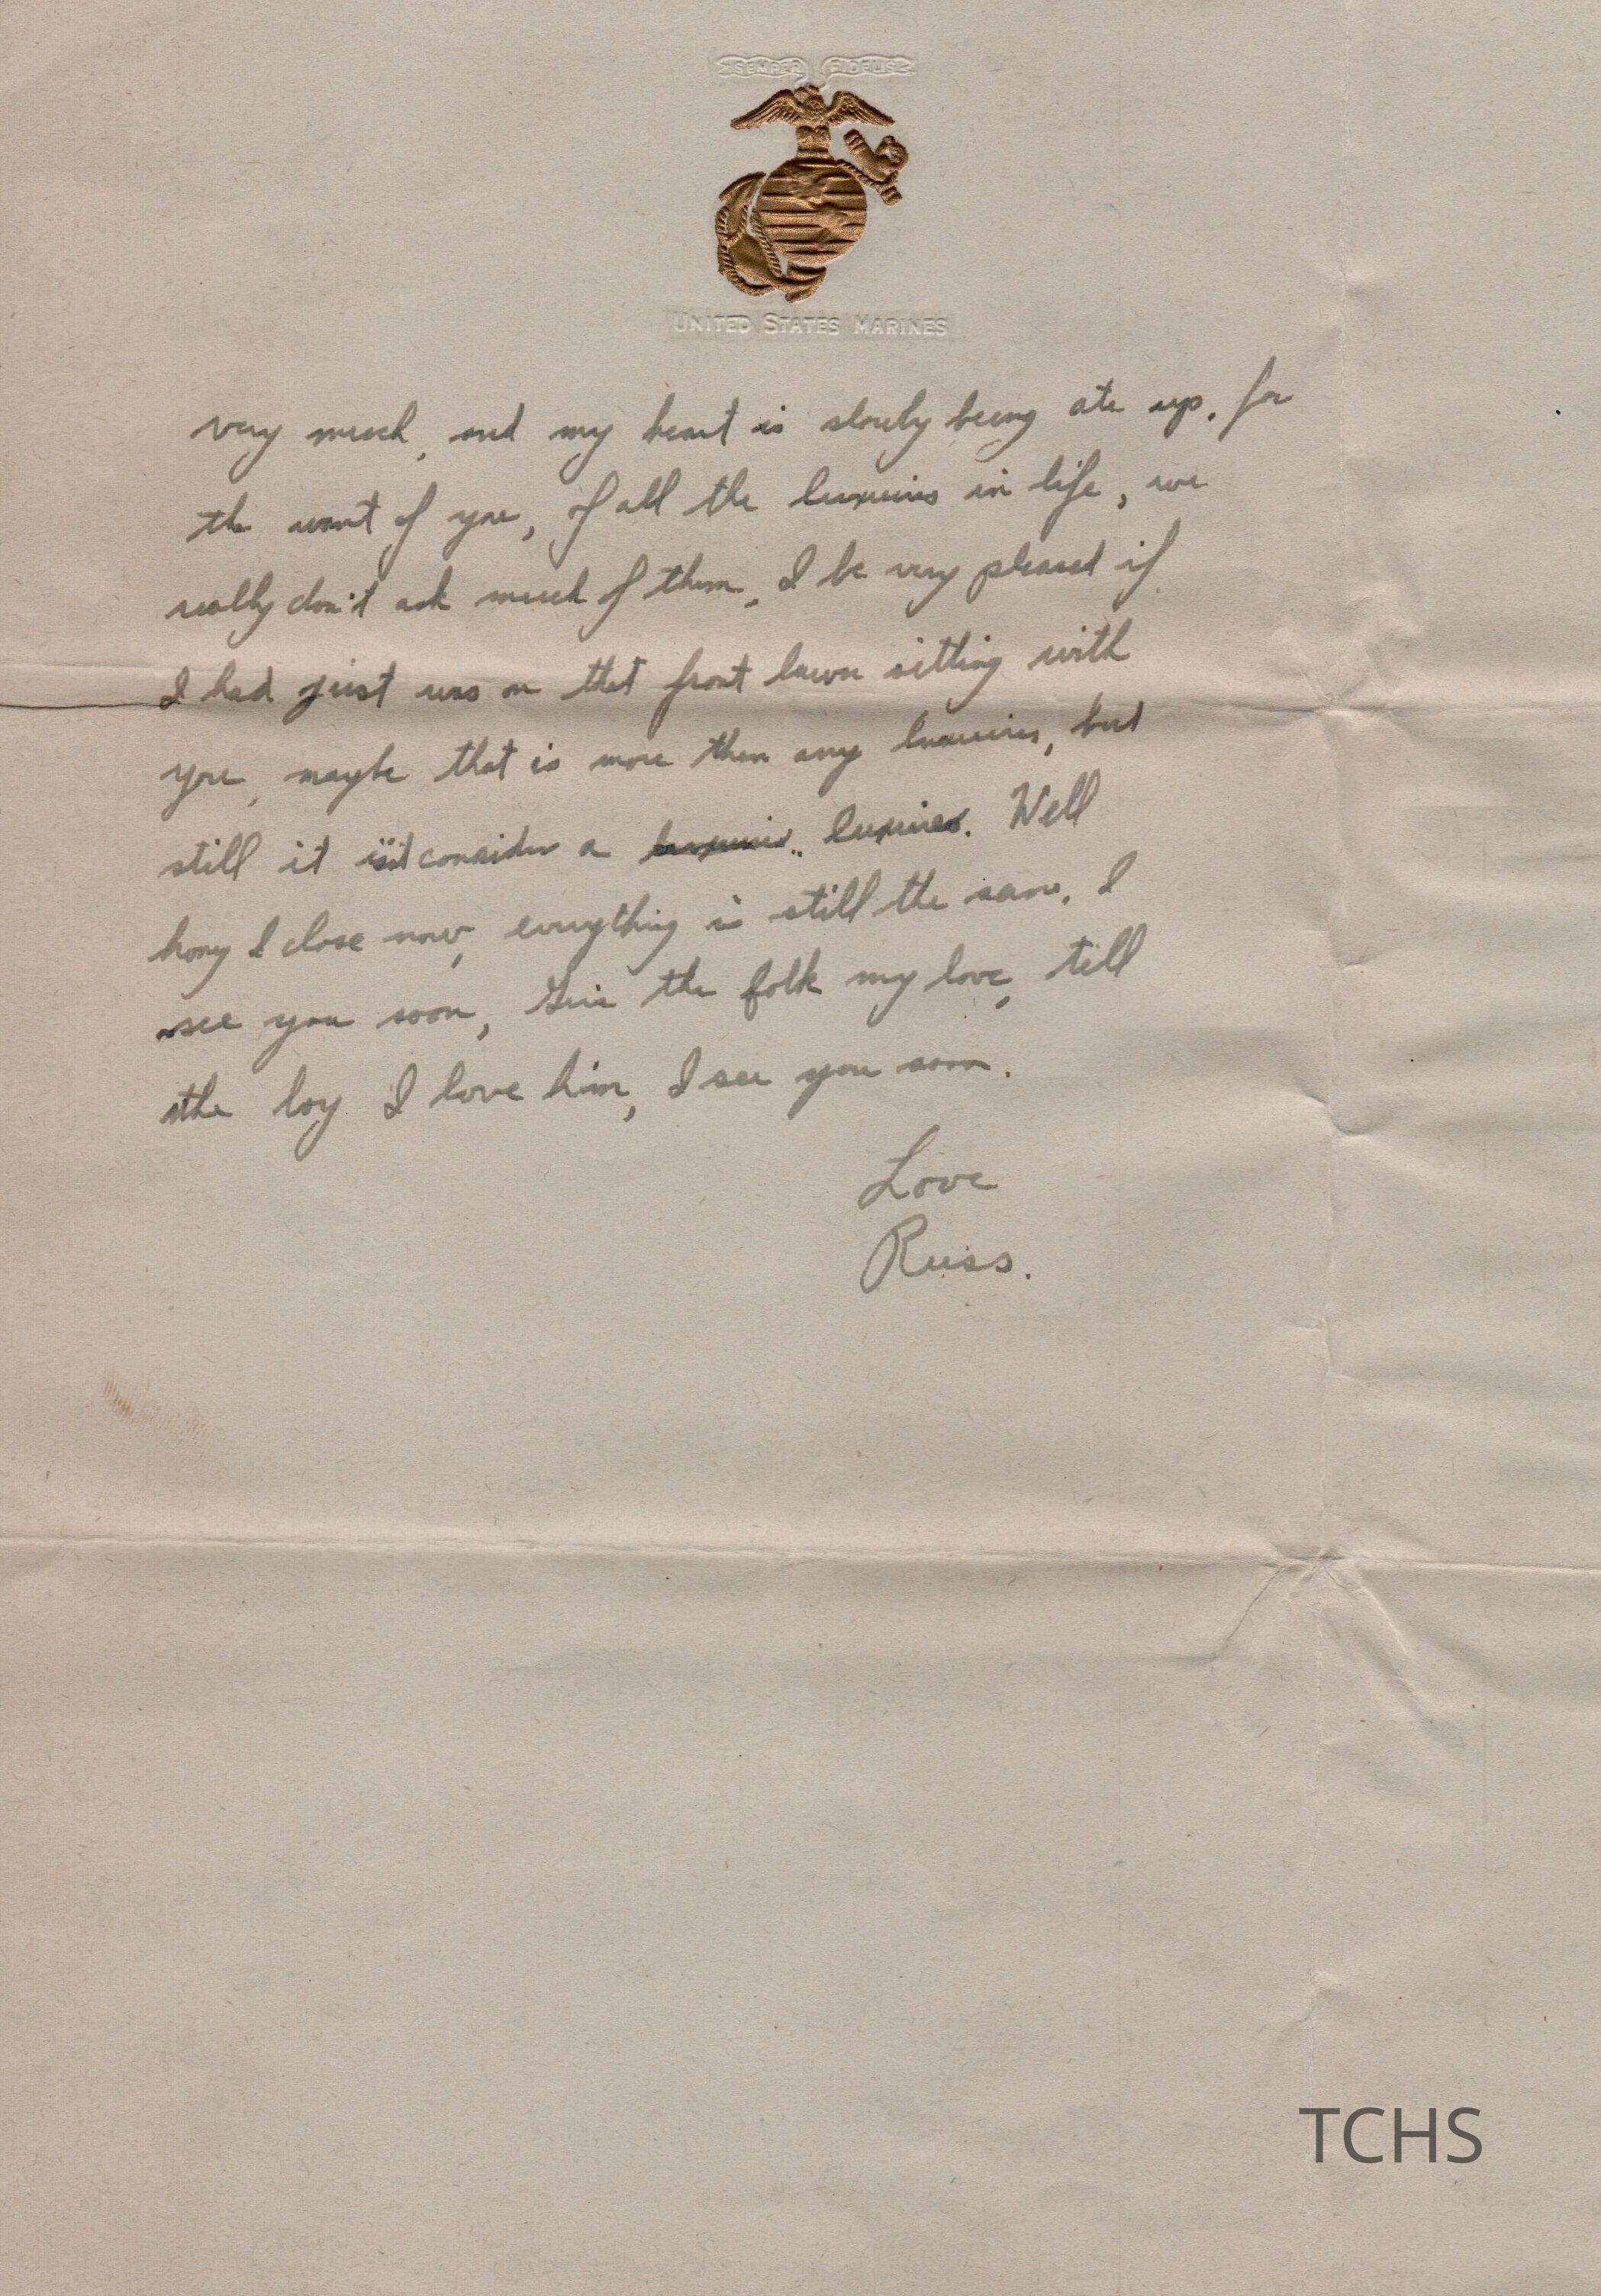 SEMPER FIDELIS
UNITED STATES MARINES
very much, and my heart is slowly being ate up. for
the want of you, of all the luxuries in life, we
really don't ask much of them, I be very pleased if
I had just was on that front lawn sitting with
you, maybe that is more then any luxuries, but
still it consider a luxuries. Well
hony I close now, everything is still the same. I
see you soon, Give the folk my love, tell
the boy I love him, I see you soon.
Love
Russ.
TCHS